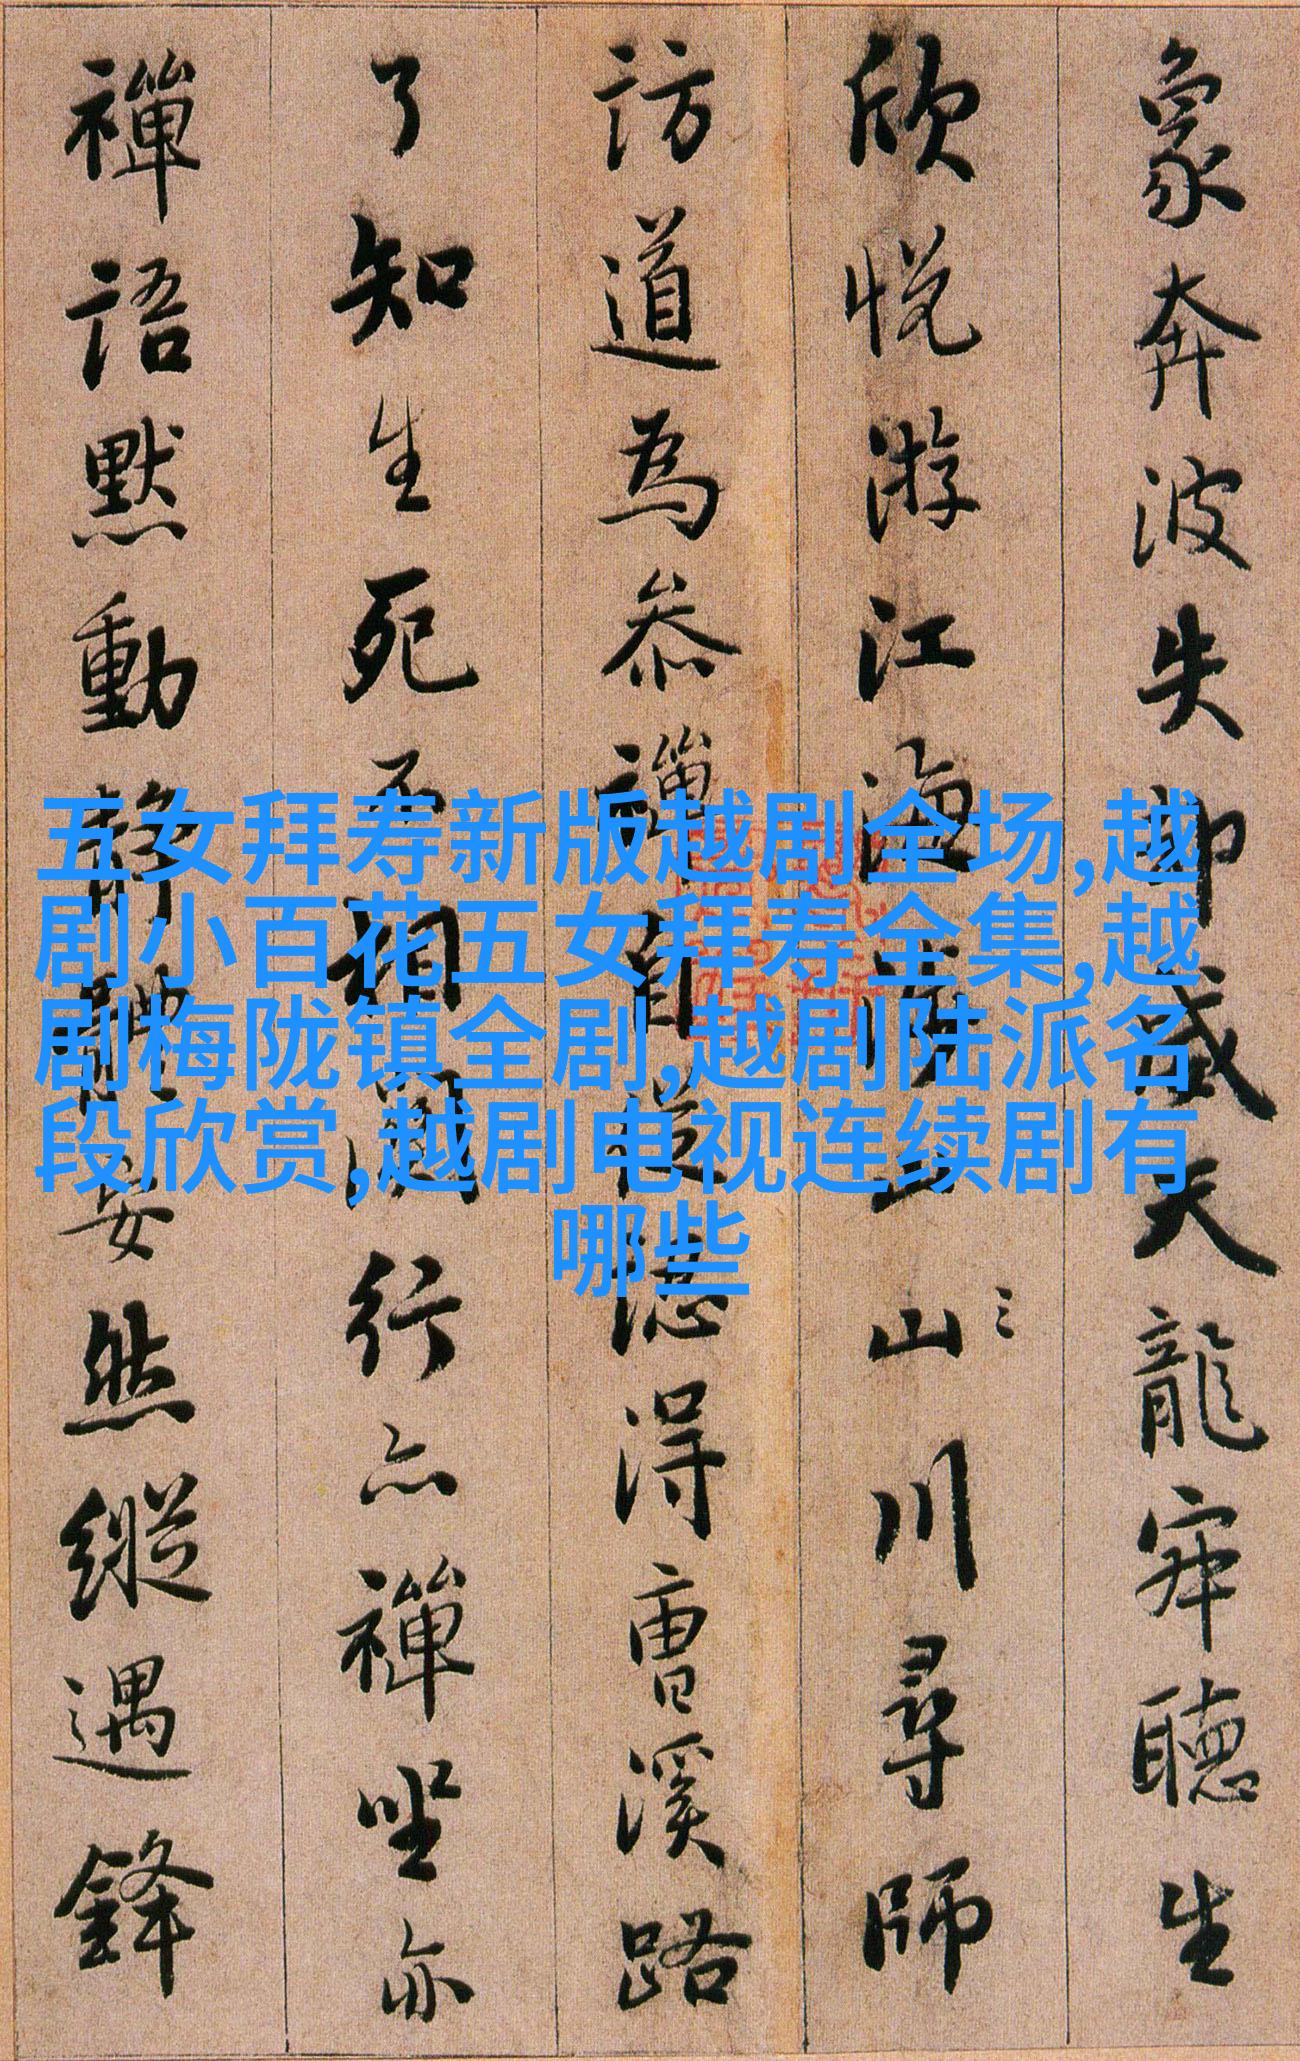 象奔波失却威天龍寂聽生
欣悅游江海山川尋師
訪道為參禪自從認得曹溪路
了知生死不相關行亦禪坐亦
禪語默動靜體安然縱遇鋒
五女拜寿新版越剧全场,越
剧小百花五女拜寿全集,越
剧梅陇镇全剧,越剧陆派名
段欣赏,越剧电视连续剧有
哪些